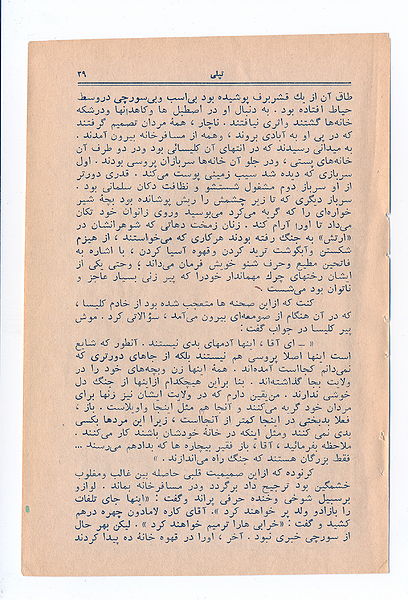 ۳۹
تپلی
طاق آن از یك قشربرف پوشیده بود بی‌اسب وبی‌سورچی دروسط
حیاط افتاده بود . به دنبال او در اصطبل ها وکاهدانها ودرشکه
خانه‌ها گشتند واثری نیافتند . ناچار ، همۀ مردان تصمیم گرفتند
که در پی او به آبادی بروند ، وهمه از مسافرخانه بیرون آمدند .
به میدانی رسیدند که در انتهای آن کلیسائی بود ودر دو طرف آن
خانه‌های پستی ، ودر جلو آن خانه‌ها سربازان پروسی بودند . اول
سربازی که دیده شد سیب زمینی پوست می‌کند . قدری دورتر
از او سرباز دوم مشغول شستشو و نظافت دکان سلمانی بود .
سرباز دیگری که تا زیر چشمش را ریش پوشانده بود بچۀ شیر
خواره‌ای را که گریه می‌کرد می‌بوسید وروی زانوان خود تکان
می‌داد تا اورا آرام کند . زنان زمخت دهاتی که شوهرانشان در
«ارتش» به جنگ رفته بودند هرکاری که می‌خواستند ، از هیزم
شکستن وآبگوشت ترید کردن وقهوه آسیا کردن ، با اشاره به
فاتحین مطیع وحرف شنو خویش فرمان می‌داند ؛ وحتی یکی از
ایشان رختهای چرك مهماندار خودرا که پیر زنی بسیار عاجز و
ناتوان بود می‌شست .
کنت که ازاین صحنه ها متعجب شده بود از خادم کلیسا ،
که در آن هنگام از صومعه‌ای بیرون می‌آمد ، سؤالاتی کرد . موش
پیر کلیسا در جواب گفت :
« ــ ای آقا ، اینها آدمهای بدی نیستند . آنطور که شایع
است اینها اصلا پروسی هم نیستند بلکه از جاهای دورتری که
نمی‌دانم کجااست آمده‌اند . همۀ اینها زن وبچه‌های خود را در
ولایت بجا گذاشته‌اند . بنا براین هیچکدام ازاینها از جنگ دل
خوشی ندارند . من‌یقین دارم که در ولایت ایشان نیز زنها برای
مردان خود گریه می‌کنند و آنجا هم مثل اینجا واویلاست . باز ،
فعلا بدبختی در اینجا کمتر از آنجااست ، زیرا این مردها بکسی
بدی نمی کنند ومثل اینکه در خانۀ خودشان باشند کار می‌کنند .
ملاحظه بفرمائید ، آقا ، باز فقیر بیچاره ها که بدادهم میرسند ...
فقط بزرگان هستند که جنگ راه می‌اندازند . »
کرنوده که از این صمیمیت قلبی حاصله بین غالب ومغلوب
خشمگین بود ترجیح داد برگردد ودر مسافرخانه بماند . لوازو
برسبیل شوخی وخنده حرفی پراند وگفت : «اینها جای تلفات
را بازادو ولد پر خواهند کرد ». آقای کاره لامادون چهره درهم
کشید و گفت : «خرابی هارا ترمیم خواهند کرد » . لیکن بهر حال
از سورچی خبری نبود . آخر ، اورا در قهوه خانۀ ده پیدا کردند